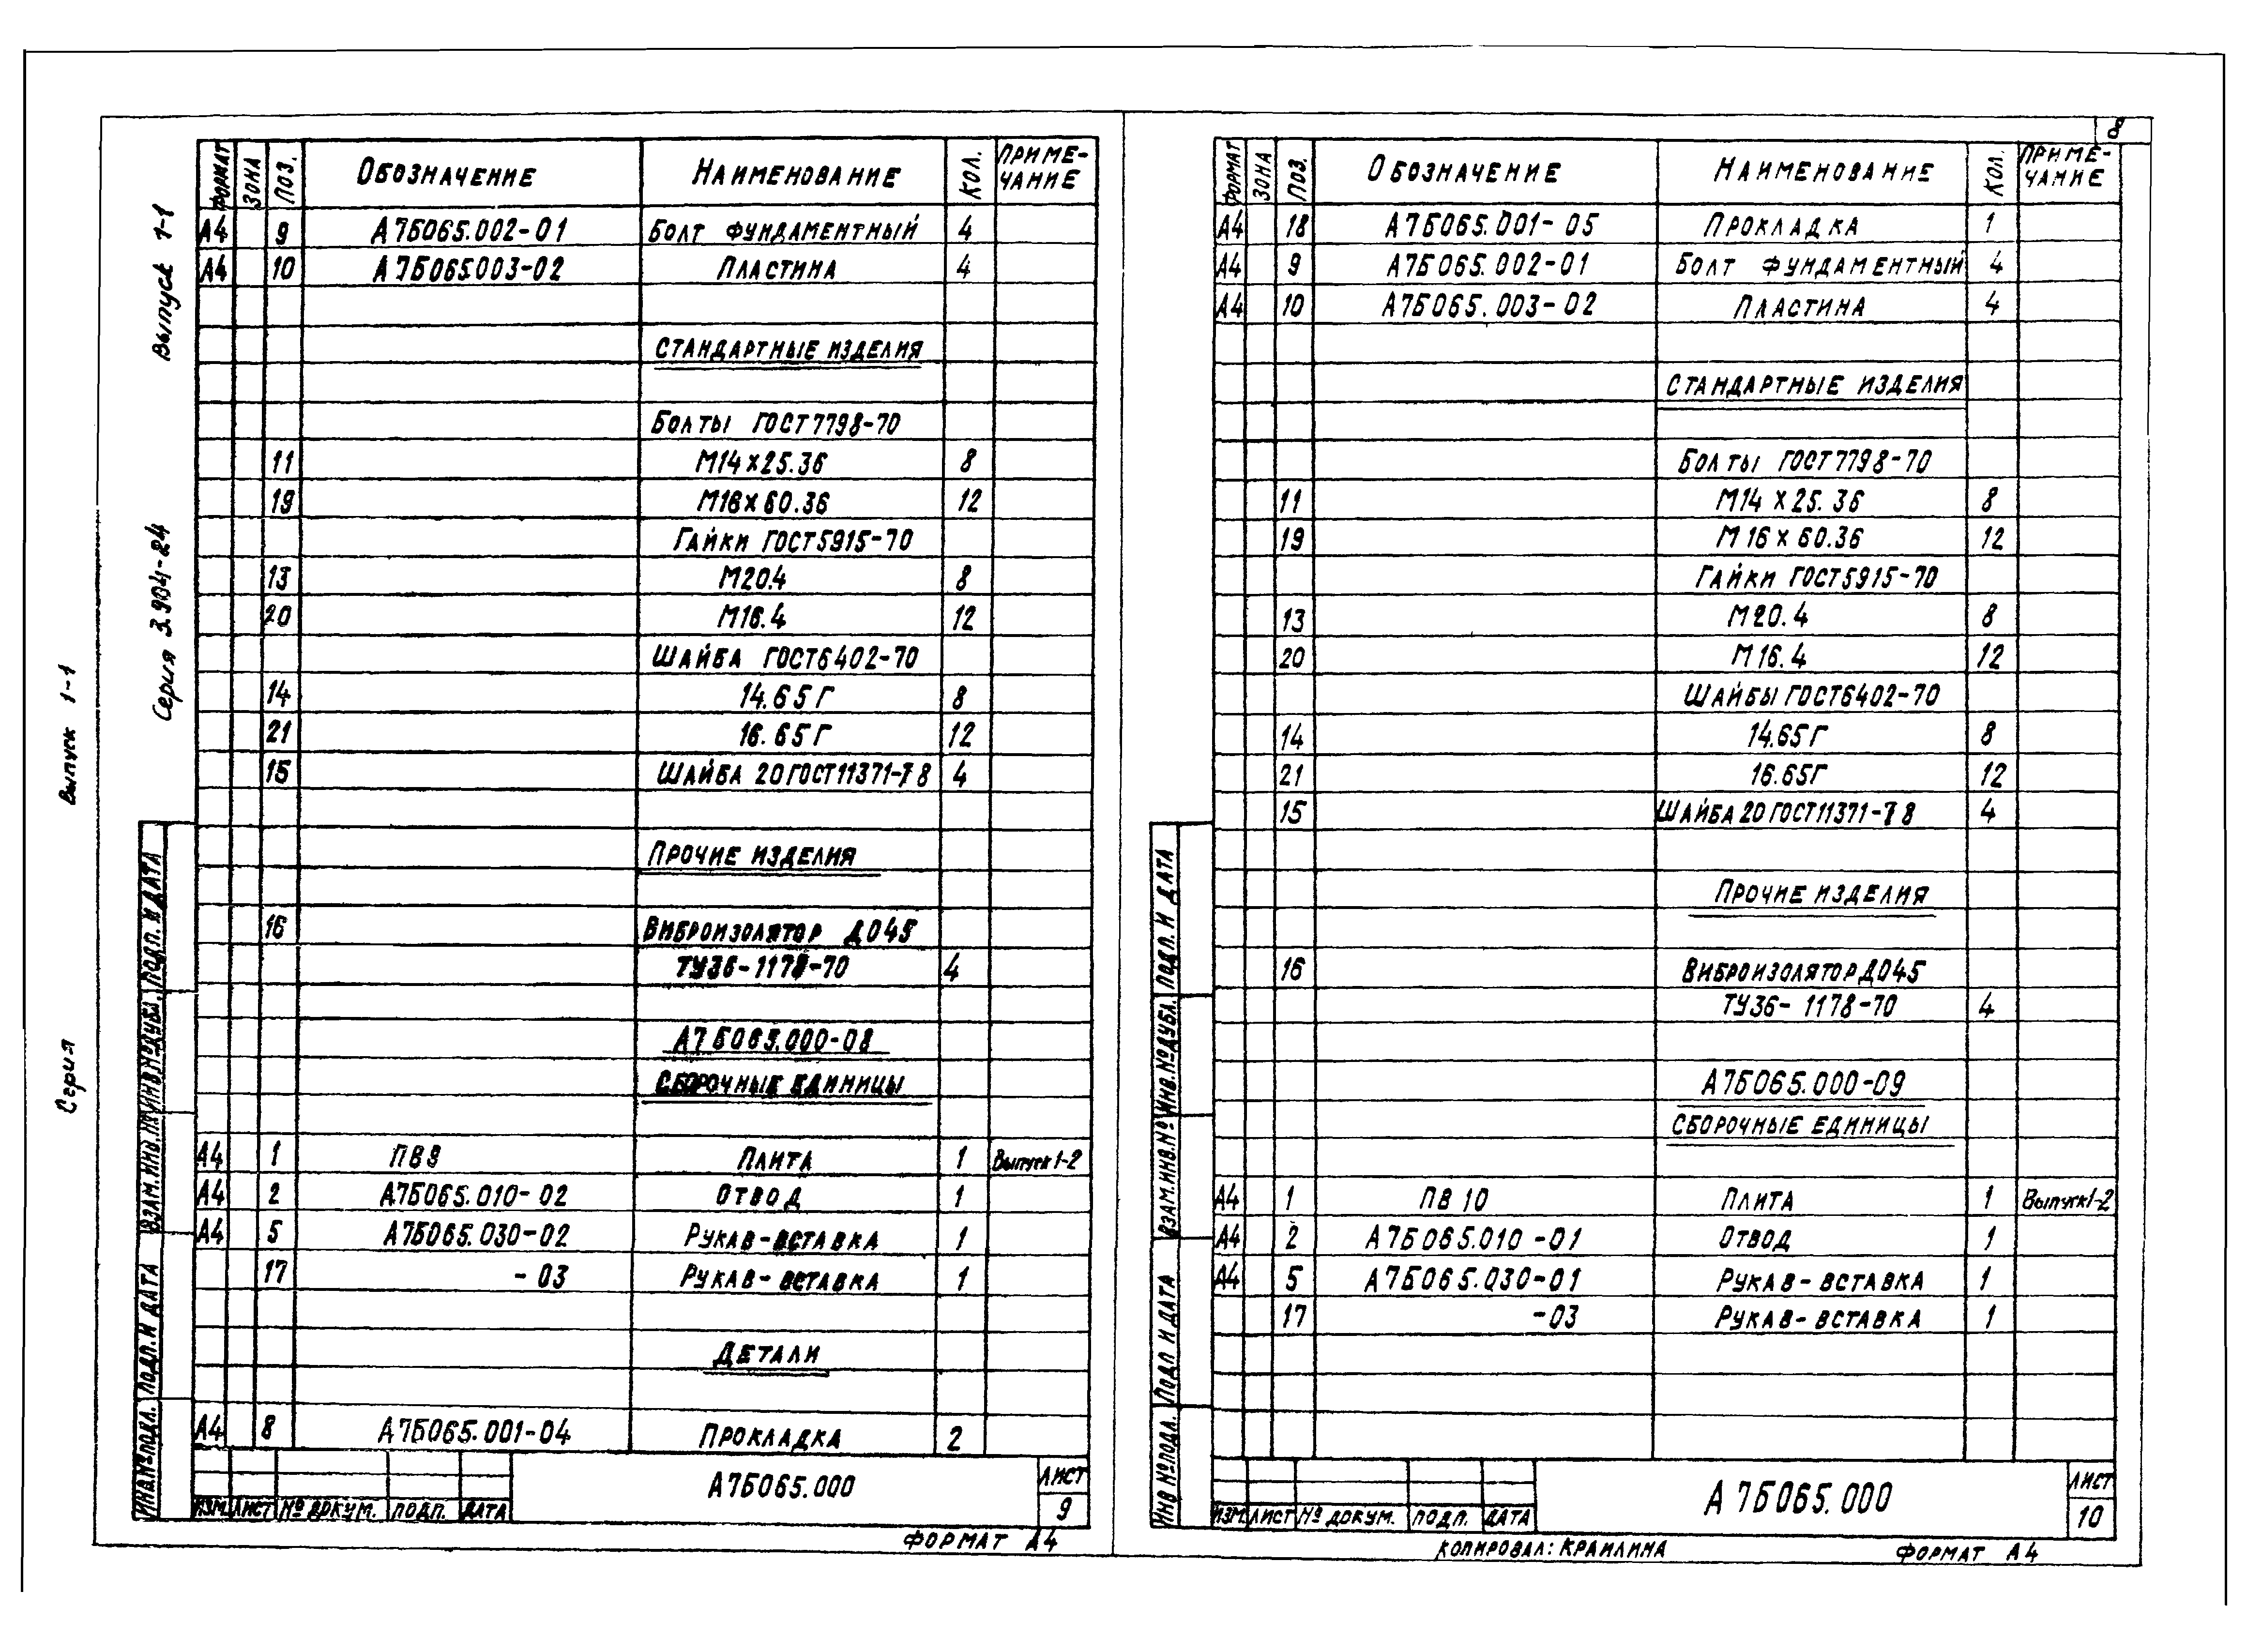 8
Выпуск 1-1
Серия 3.904-24
Выпуск 1-1
Серия
ФОРМАТ ЗОНА ПОЗ. ОБОЗНАЧЕНИЕ НАИМЕНОВАНИЕ КОЛ. ПРИМЕ-
ЧАНИЕ
А4 9 А7Б065.002-01 БОЛТ ФУНДАМЕНТНЫЙ 4
А4 10 А7Б065.003-02 ПЛАСТИНА 4
СТАНДАРТНЫЕ ИЗДЕЛИЯ
БОЛТЫ ГОСТ7798-70
11 М14×25.36 8
19 М16×60.36 12
ГАЙКИ ГОСТ5915-70
13 М20.4 8
20 М16.4 12
ШАЙБА ГОСТ6402-70
14 14.65Г 8
21 16.65Г 12
15 ШАЙБА 20ГОСТ11371-78 4
ПРОЧИЕ ИЗДЕЛИЯ
16 ВИБРОИЗОЛЯТОР ДО45
ТУ36-1178-70 4
А7Б065.000-08
СБОРОЧНЫЕ ЕДИНИЦЫ
А4 1 ПВ9 ПЛИТА 1 Выпуск 1-2
А4 2 А7Б065.010-02 ОТВОД 1
А4 5 А7Б065.030-02 РУКАВ-ВСТАВКА 1
17 -03 РУКАВ-ВСТАВКА 1
ДЕТАЛИ
А4 8 А7Б065.001-04 ПРОКЛАДКА 2
ИНВ.№ПОДЛ. ПОДП. И ДАТА ВЗАМ.ИНВ.№ ИНВ.№ДУБЛ. ПОДП. И ДАТА
А7Б065.000
ЛИСТ
9
ИЗМ. ЛИСТ № ДОКУМ. ПОДП. ДАТА
ФОРМАТ А4
ФОРМАТ ЗОНА ПОЗ. ОБОЗНАЧЕНИЕ НАИМЕНОВАНИЕ КОЛ. ПРИМЕ-
ЧАНИЕ
А4 18 А7Б065.001-05 ПРОКЛАДКА 1
А4 9 А7Б065.002-01 БОЛТ ФУНДАМЕНТНЫЙ 4
А4 10 А7Б065.003-02 ПЛАСТИНА 4
СТАНДАРТНЫЕ ИЗДЕЛИЯ
БОЛТЫ ГОСТ7798-70
11 М14×25.36 8
19 М16×60.36 12
ГАЙКИ ГОСТ5915-70
13 М20.4 8
20 М16.4 12
ШАЙБЫ ГОСТ6402-70
14 14.65Г 8
21 16.65Г 12
15 ШАЙБА 20ГОСТ11371-78 4
ПРОЧИЕ ИЗДЕЛИЯ
16 ВИБРОИЗОЛЯТОР ДО45
ТУ36-1178-70 4
А7Б065.000-09
СБОРОЧНЫЕ ЕДИНИЦЫ
А4 1 ПВ 10 ПЛИТА 1 Выпуск 1-2
А4 2 А7Б065.010-01 ОТВОД 1
А4 5 А7Б065.030-01 РУКАВ-ВСТАВКА 1
17 -03 РУКАВ-ВСТАВКА 1
ИНВ №ПОДЛ. ПОДП И ДАТА ВЗАМ.ИНВ.№ ИНВ.№ДУБЛ. ПОДП. И ДАТА
А7Б065.000
ЛИСТ
10
ИЗМ. ЛИСТ № ДОКУМ. ПОДП. ДАТА
КОПИРОВАЛ: КРАИЛИНА ФОРМАТ А4